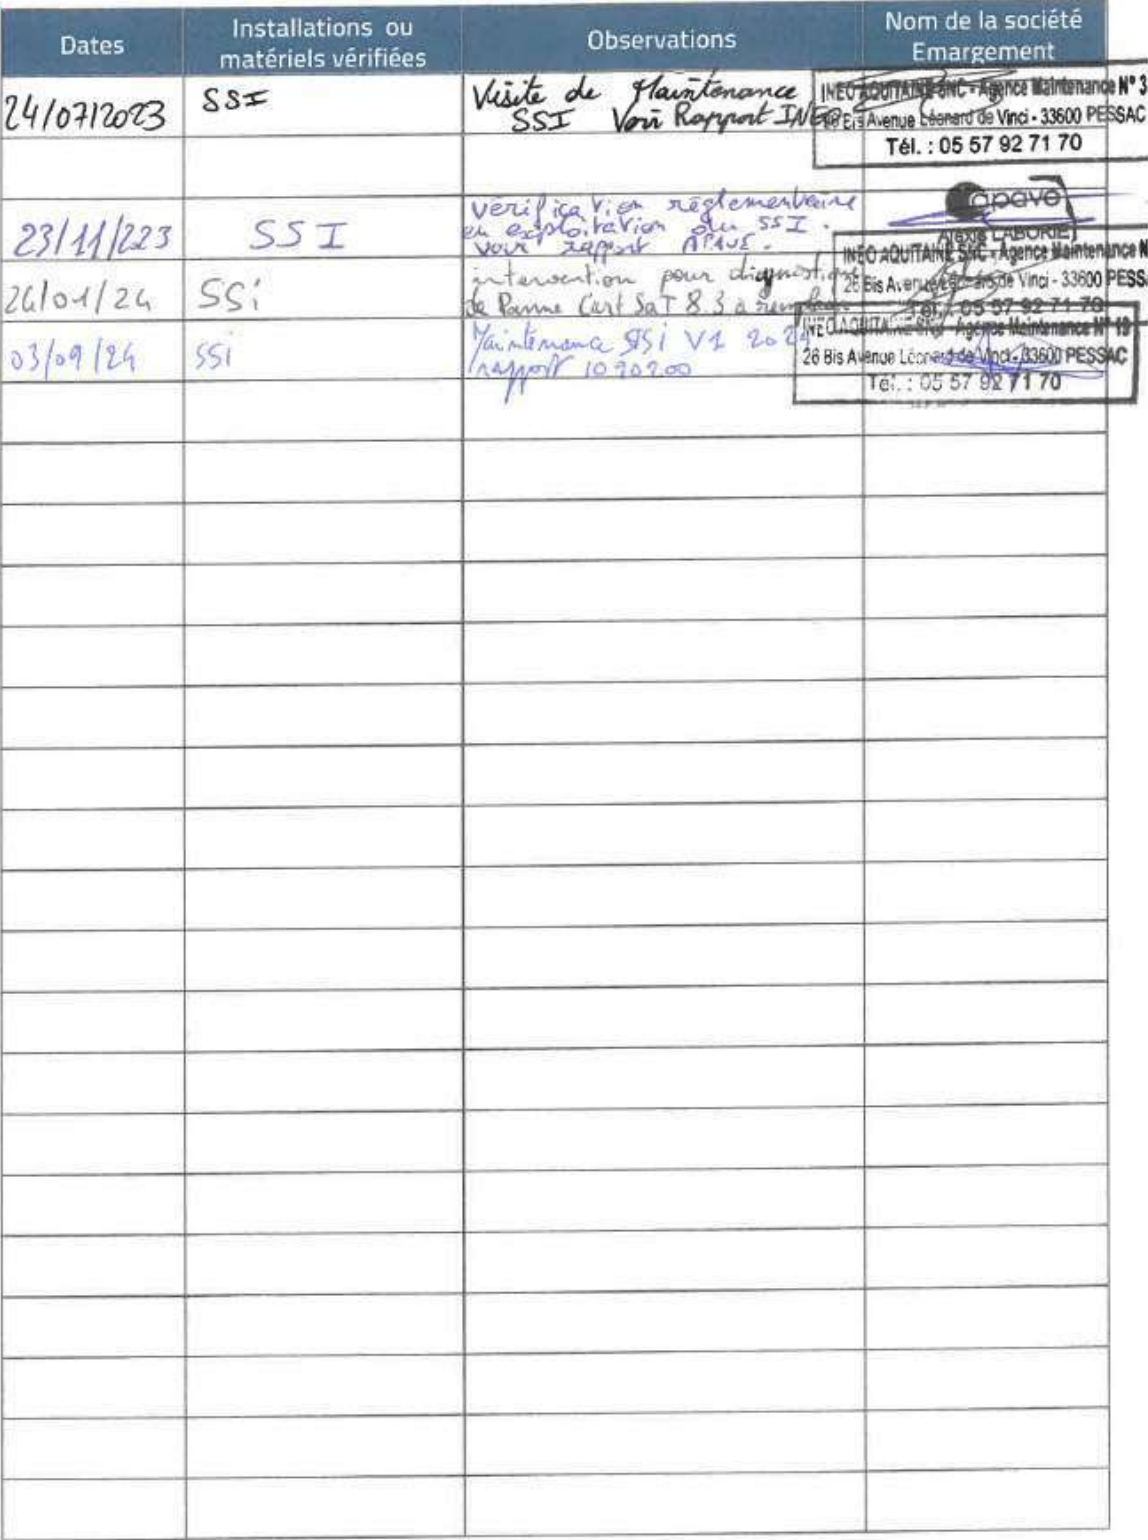 Dates
Installations ou
matériels vérifiées
Observations
Nom de la société
Emargement
24/07/2023
SSI
Visite de Maintenance
SSI Voir Rapport INEO
INEO AQUITAINE SNC - Agence Maintenance N° 3
26 Bis Avenue Léonard de Vinci - 33600 PESSAC
Tél. : 05 57 92 71 70
23/11/223
SSI
verification réglementaire
en exploitation du SSI.
voir rapport APAVE.
apave
Alexis LABORIE
26/01/24
SSi
intervention pour diagnostique
de Panne Cart SaT 8.3 a
INEO AQUITAINE SNC - Agence Maintenance N
26 Bis Avenue Léonard de Vinci - 33600 PESSA
Tél. : 05 57 92 71 70
03/09/24
SSi
Maintenance SSi V1 2024
rapport 1020200
INEO AQUITAINE SNC - Agence Maintenance N° 19
26 Bis Avenue Léonard de Vinci - 33600 PESSAC
Tél. : 05 57 92 71 70